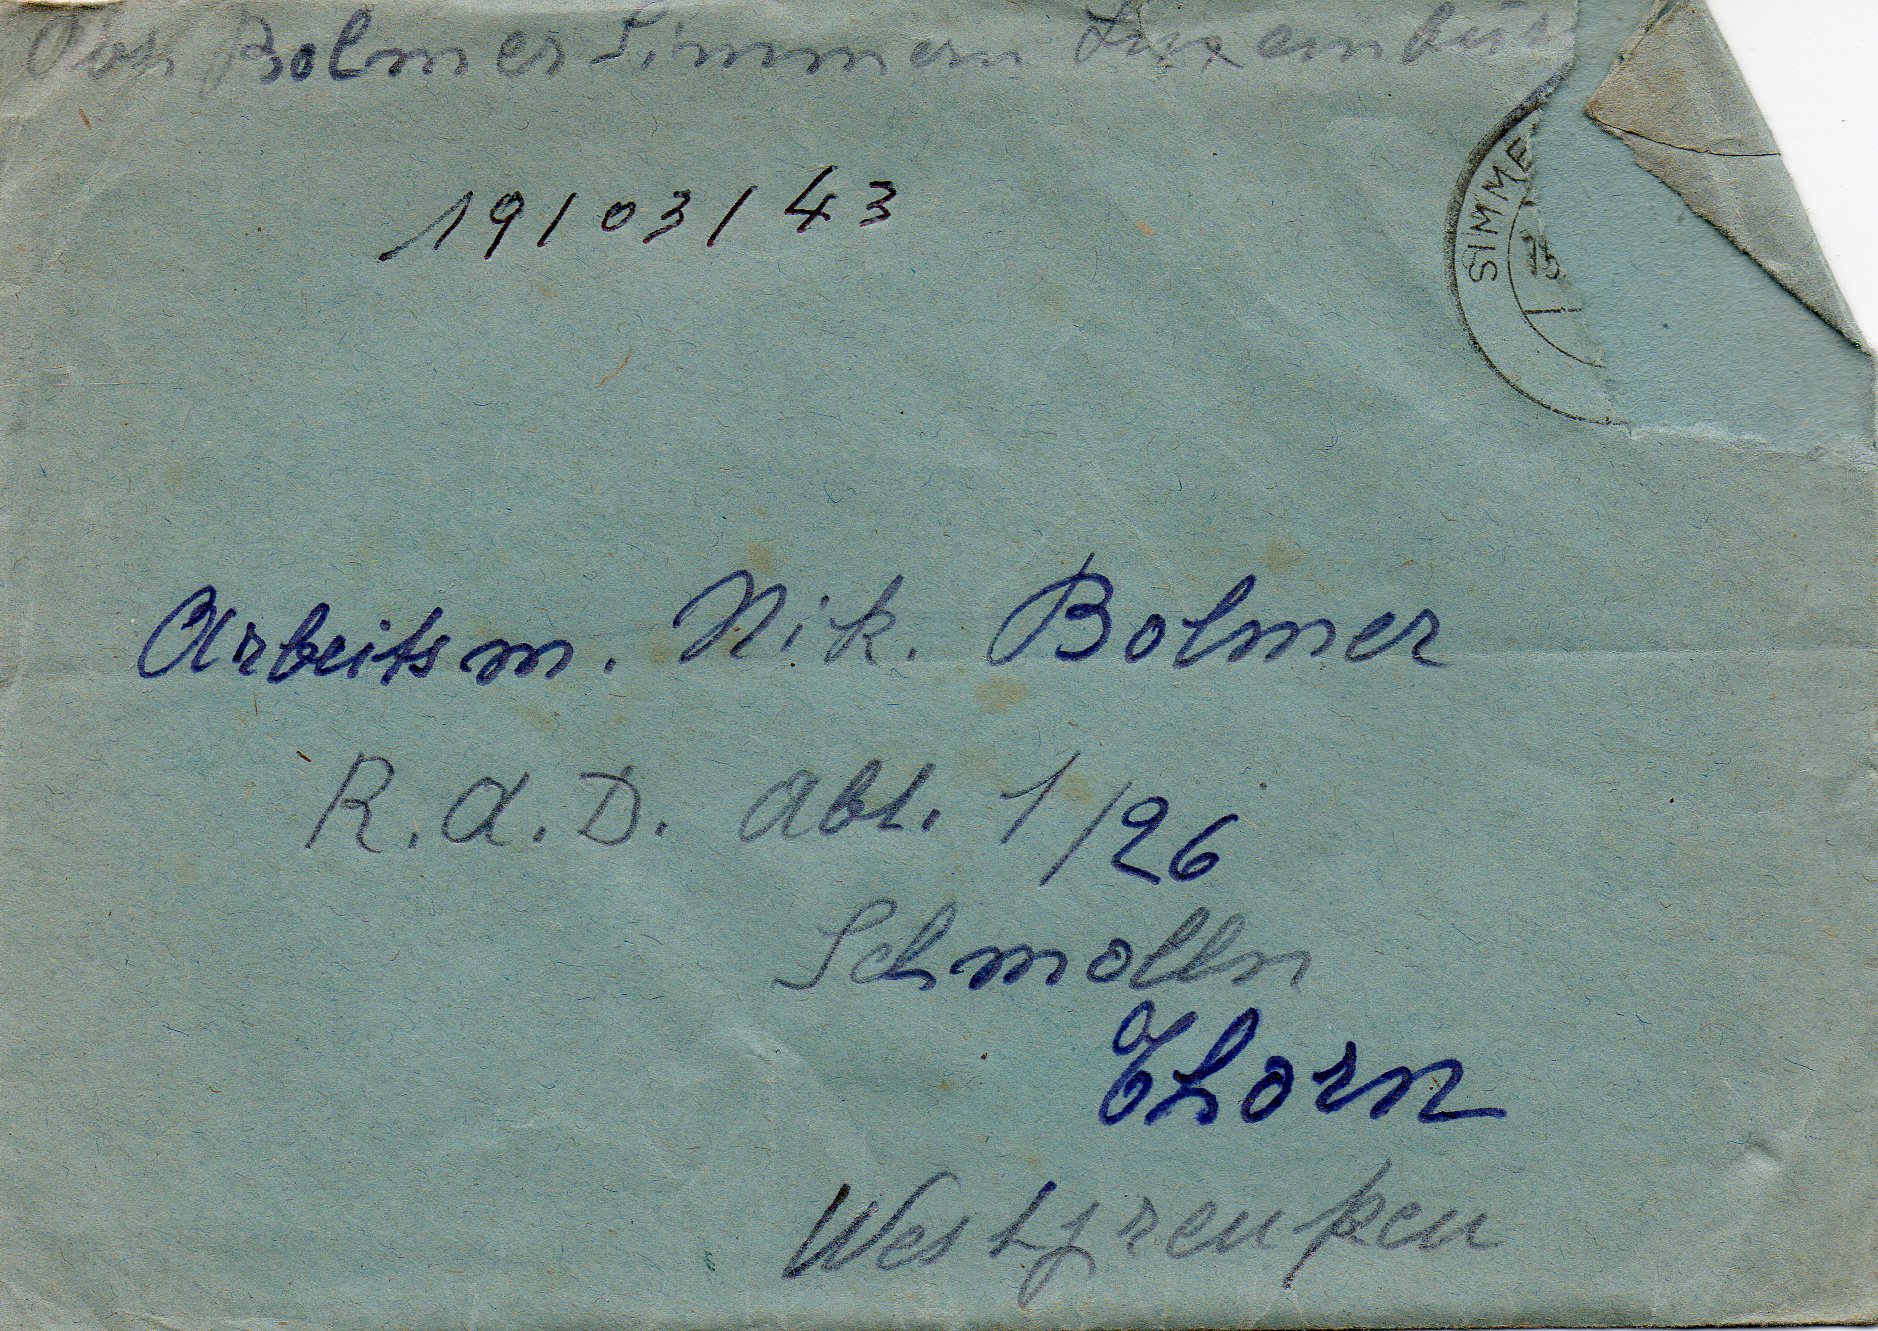 Abs. Bolmer Simmern Luxembur
19/03/43
SIMME
15.
Arbeitsm. Nik. Bolmer
R.A.D. Abt. 1/26
Schmolln
Thorn
Westpreußen